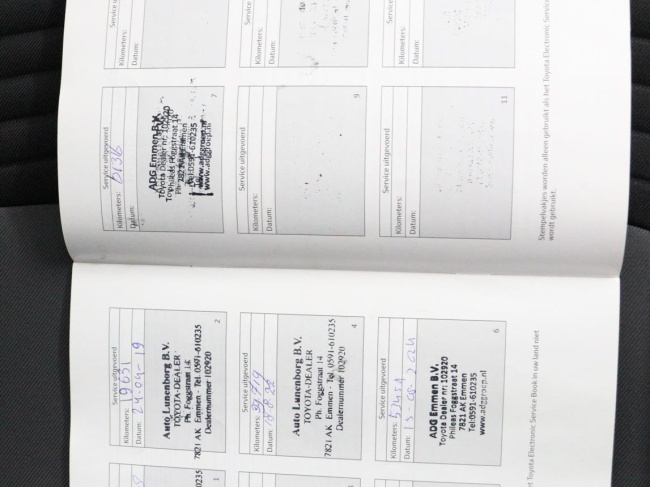 Service uitgevoerd
Kilometers: 19651
Datum: 24-04-19
Auto Lunenborg B.V.
TOYOTA-DEALER
Ph. Foggstraat 14
7821 AK Emmen - Tel. 0591-610235
Dealernummer 102920
2
Service uitgevoerd
Kilometers:
Datum:
Auto Lunenborg B.V.
TOYOTA-DEALER
Ph. Foggstraat 14
7821 AK Emmen - Tel. 0591-610235
Dealernummer 102920
4
Service uitgevoerd
Kilometers:
Datum:
ADG Emmen B.V.
Toyota Dealer nr: 102920
Phileas Foggstraat 14
7821 AK Emmen
Tel:0591-610235
www.adgroep.nl
6
Toyota Electronic Service Book in uw land niet
Service uitgevoerd
Kilometers:
Datum:
ADG Emmen B.V.
Toyota Dealer nr: 102920
Phileas Foggstraat 14
Emmen
www.adgroep.nl
7
Service uitgevoerd
Kilometers:
Datum:
9
Service uitgevoerd
Kilometers:
Datum:
11
Stempelvakjes worden alleen gebruikt als het Toyota Electronic Service
wordt gebruikt.
Service
Kilometers:
Datum:
Service
Kilometers:
Datum:
Service
Kilometers:
Datum: